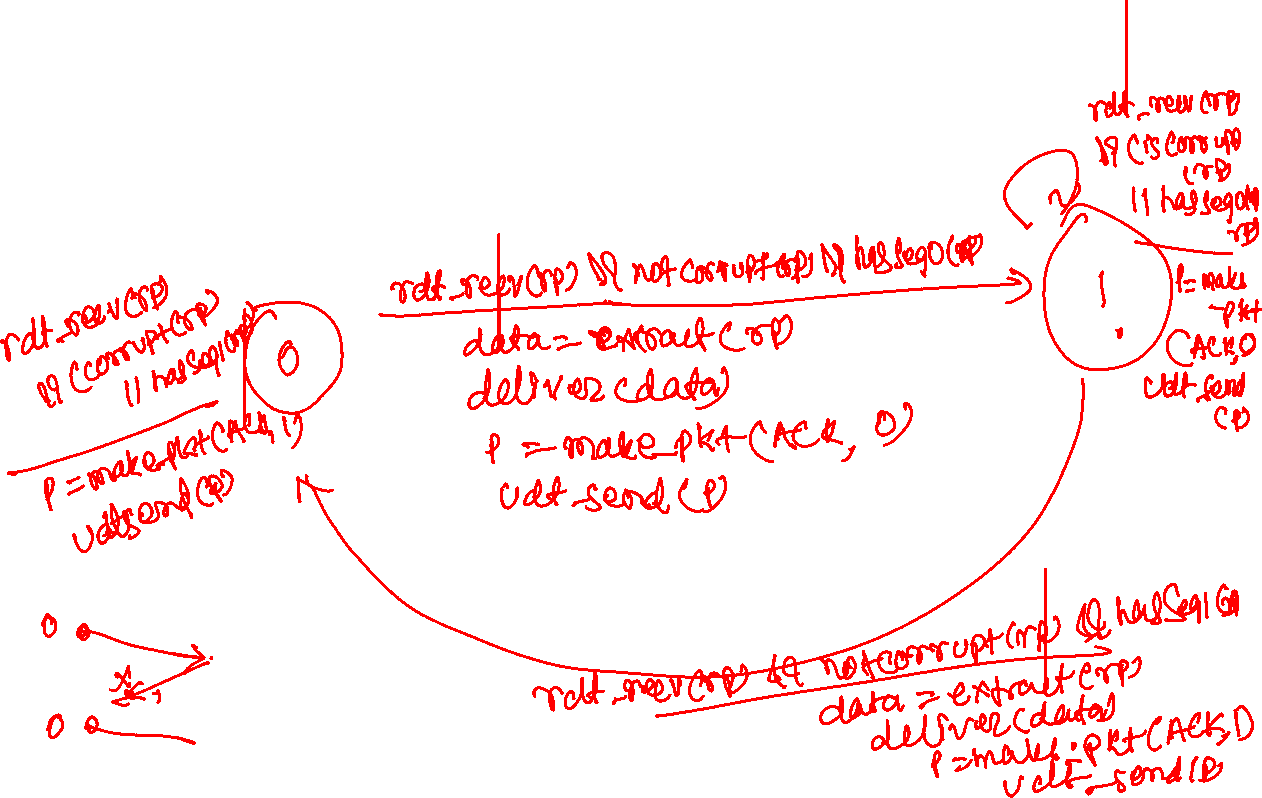 rdt_recv(rp)
&& (corrupt(rp)
|| hasseq1(rp))
p = make_pkt(ACK, 1)
udtsend(p)
0
rdt_recv(rp) && notcorrupt(rp) && hasseq0(rp
data = extract(rp)
deliver(data)
p = make_pkt(ACK, 0)
udt_send(p)
rdt_recv(rp)
&& (iscorrupt
(rp)
|| hasseq0(
rp)
1
p = make
-pkt
(ACK,0
udt_send
(p)
rdt_recv(rp) && notcorrupt(rp) && hasseq1(
data = extract(rp)
deliver(data)
p = make_pkt(ACK,1)
udt_send(p
0
x
0